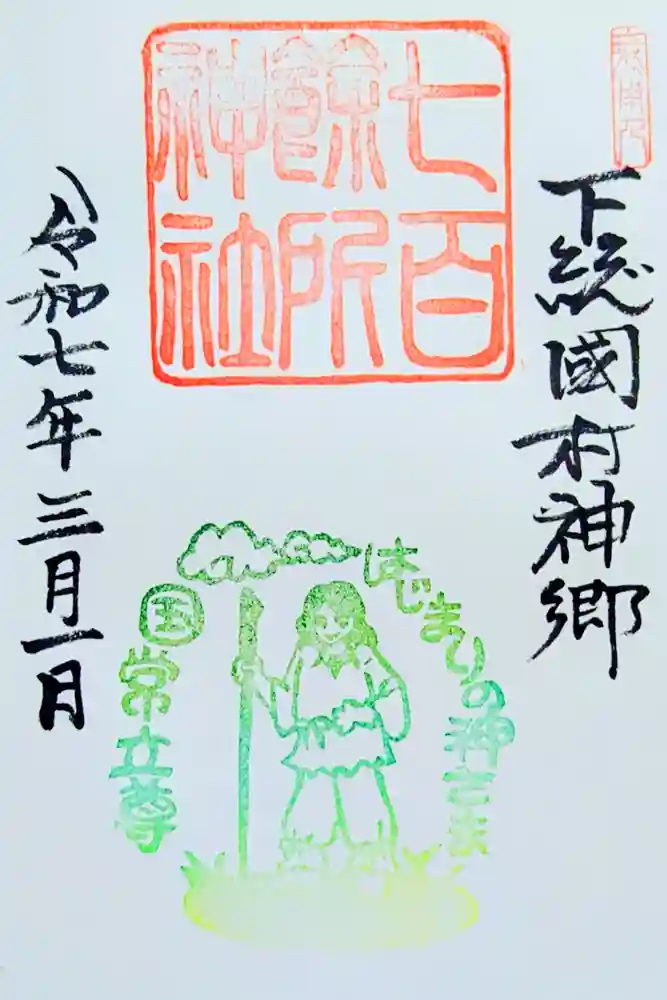 下総國村神郷
七百
餘所
神社
はじまりの神さま
国常立尊
令和七年三月一日